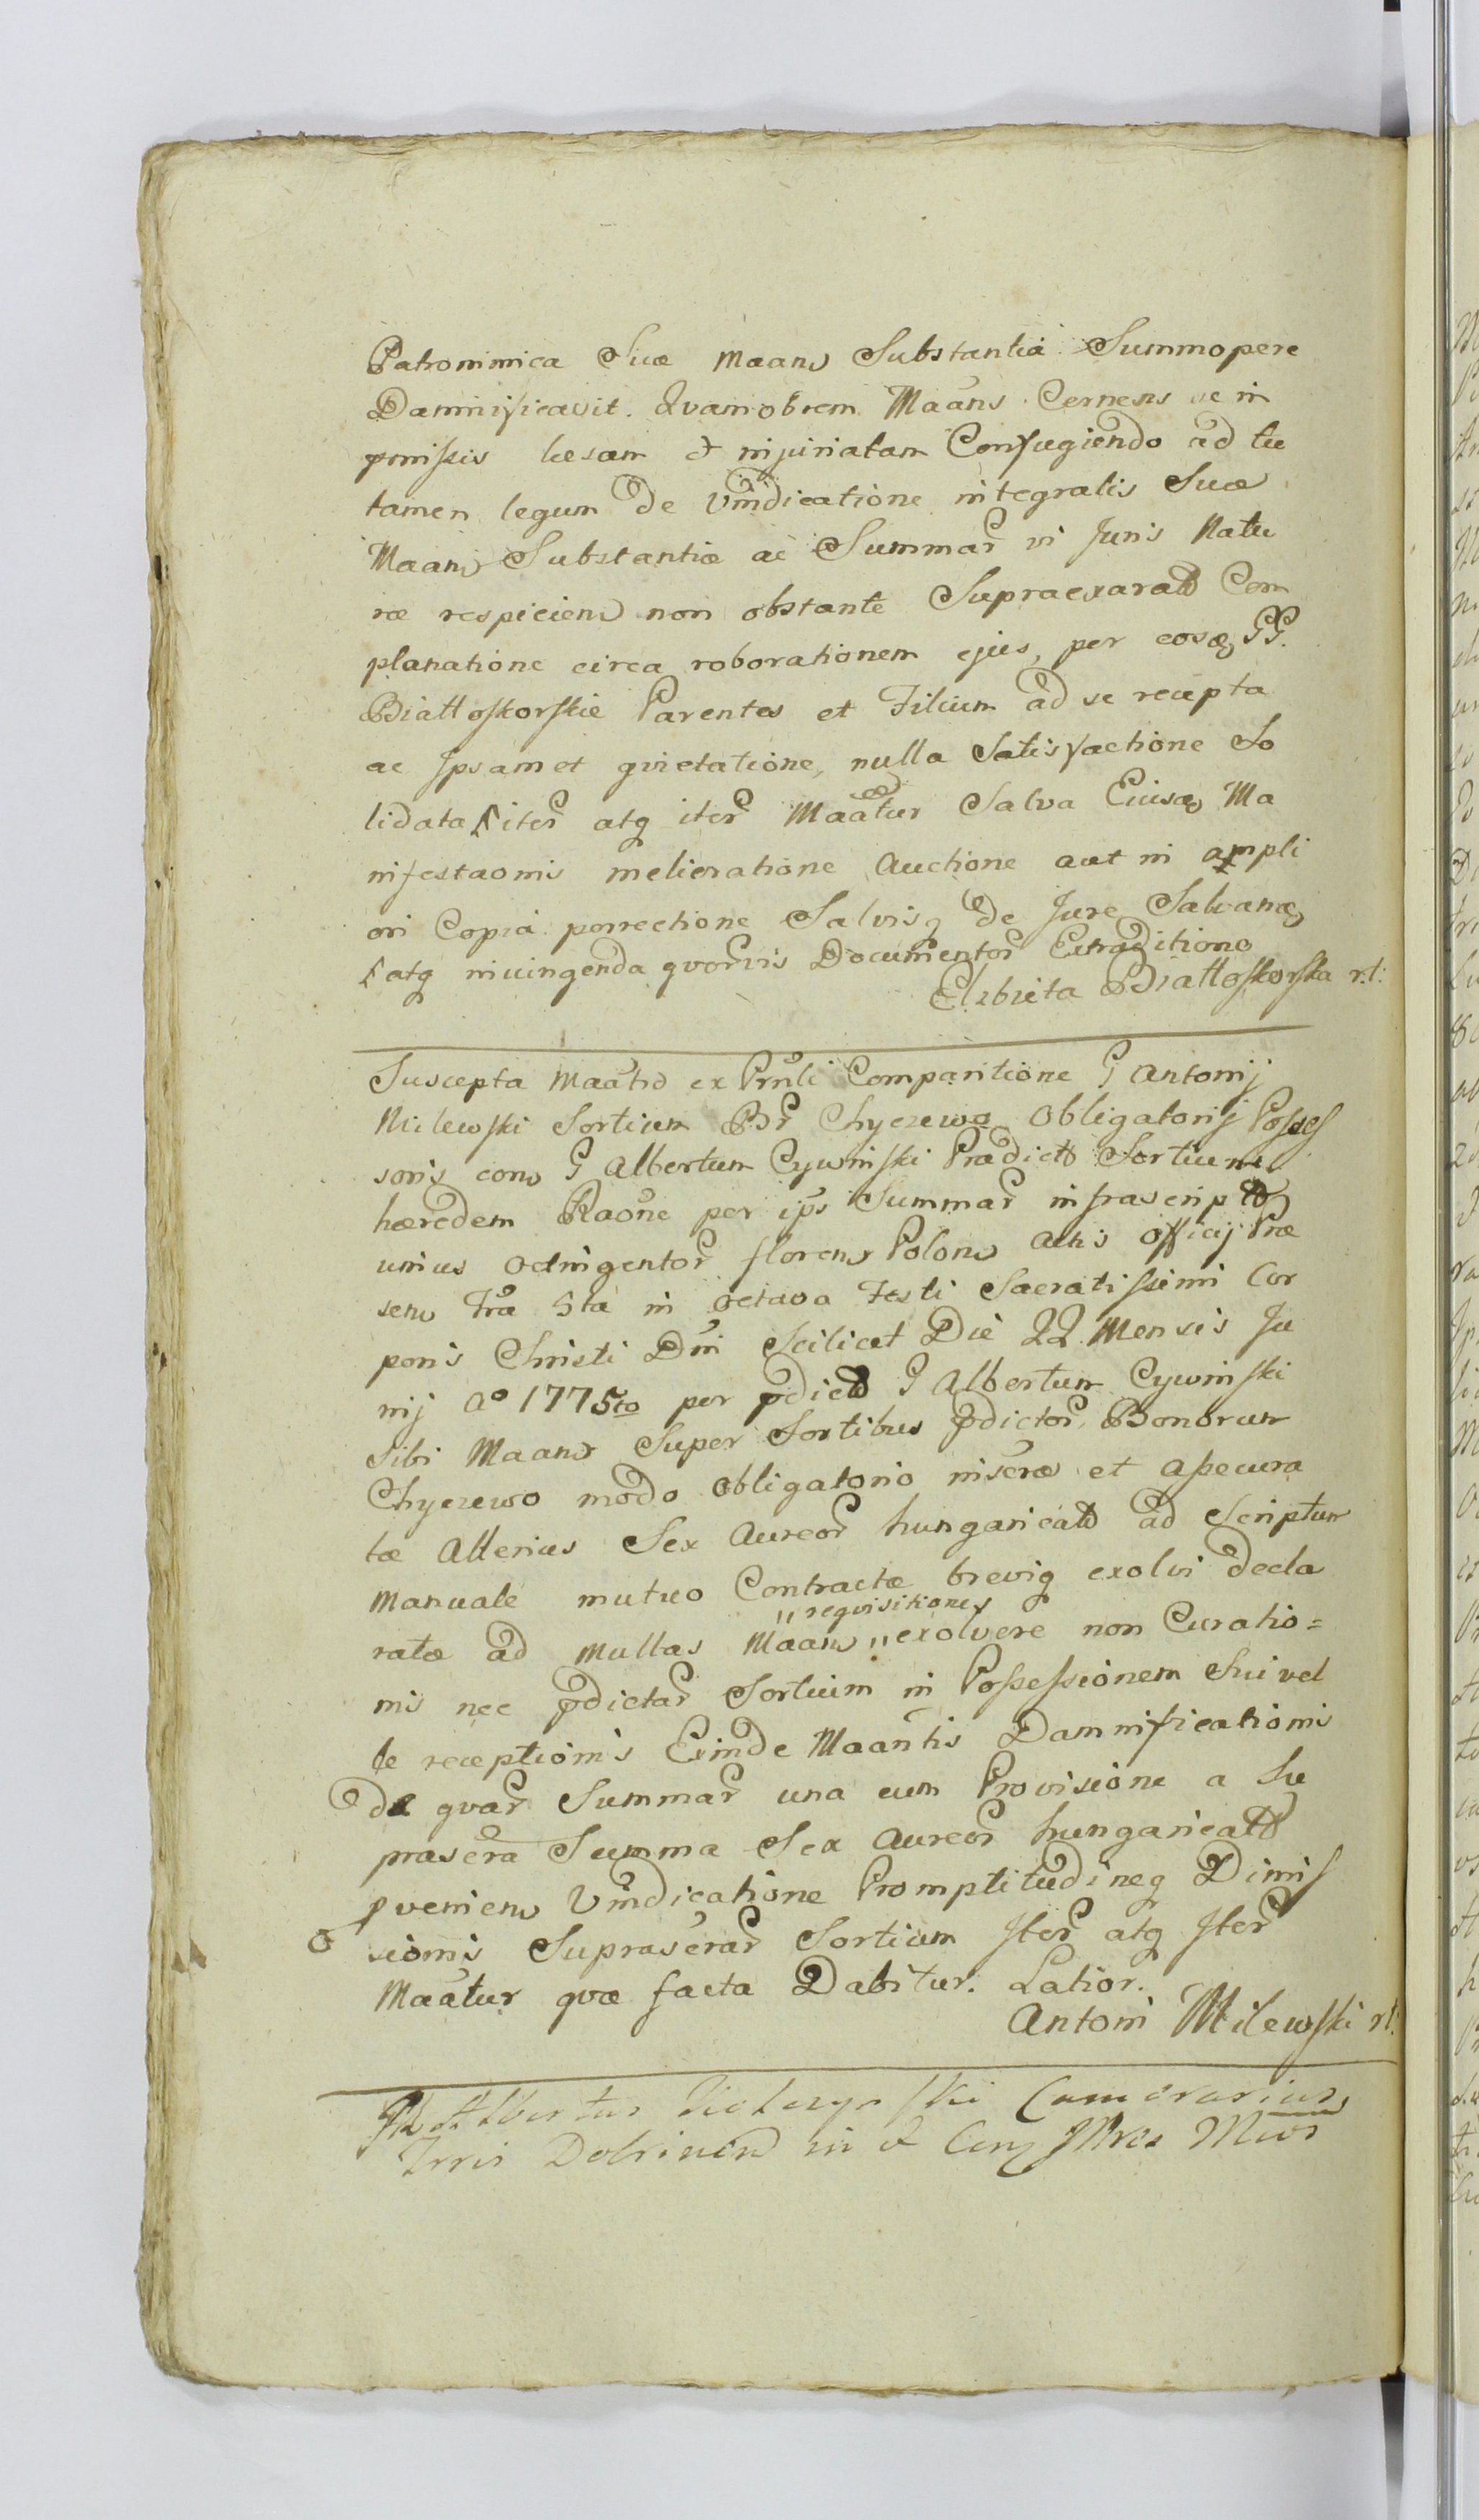 Patronimica Suæ Maand Substantia Summopere
Damnificavit. Qvamobrem Maans Cernens se in
pmissis læsam et injuriatam Confugiendo ad tu
tamen legum de Vindicatione integralis Suæ
Maand Substantiæ ac Summar vi Juris Natu
ræ respiciend non obstante Supraexarata Com
planatione circa roborationem ejus, per eosq GG.
Biattoskorskie Parentes et Filium ad se recepta
ac Ipsamet qvietatione, nulla Satisfactione So
lidata iter atq iter Maatur Salva Ejusq Ma
nifestaonis melioratione Auctione aut in ampli
ori Copia porrectione Salvisq de Jure Salvanq
atq iniungenda qvorvis Documentor Extraditione
Elzbieta Biattoskorska r.t.
Suscepta Maatio ex Prnli Comparitione G Antonij
Milewski Sortium Br Chyczewo Obligatorij Posses
soris cond G Albertum Cywinski Prædictt Sortium
hæredem Raone per ips Summar infrascript
unius octingentor florend Polond actis officij Præ
send Fra 5ta in octava Festi Sacratissimi Cor
poris Christi Dni Scilicet Die 22 Mensis Ju
nij Ao 1775to per pdictt G Albertum Cywinski
sibi Maand Super Sortibus pdictor Bonorum
Chyczewo modo obligatorio inscræ et assecura
tæ Alterius Sex Aureor hungaricatt ad Scriptum
Manuale mutuo Contractæ breviq exolvi decla
ratæ ad Multas Maand "requisitiones" exolvere non Curatio=
nis nec pdictar Sortium in Possessionem Sui vel
le receptionis Exinde Maantis Damnificationis
de qvar Summar una cum Provisione a Su
prascra Summa Sex Aureor hungaricatt
pveniend Vindicatione Promptitudineq Dimis
sionis Suprascrar Sortium Iter atq Iter
Maatur qvæ facta Dabitur. Latior.
Antoni Milewski rt.
Albertus Camerarius
Trris Dobrinend